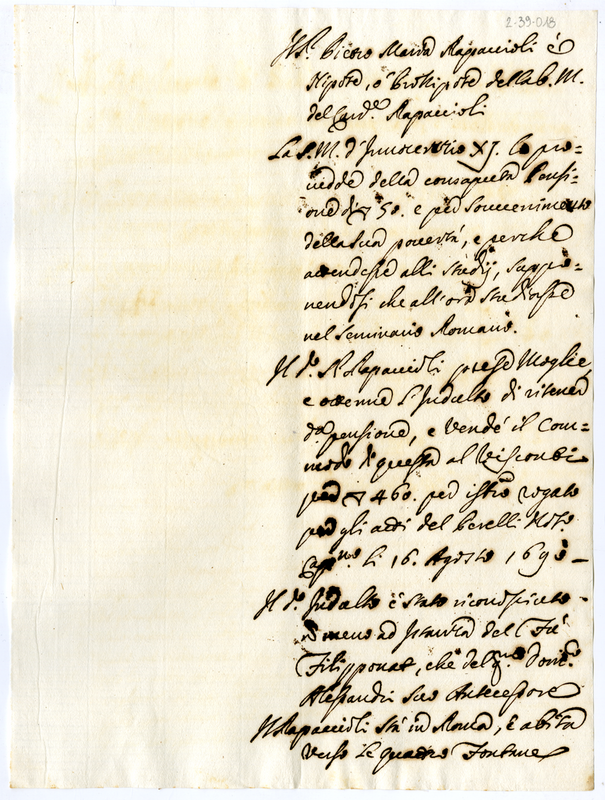 2-39-018
Il Sr. Piero Maria Rapaccioli è
Nipote, o Pronipote della b. M.
del Card.e Rapaccioli
La S. M. d'Innocentio XI. lo pro=
vedde della consaputa Pensi=
one di 50. e per souvenimento
della sua povertà, e perche
attendesse alli studij, suppo=
nendosi che all'ora studiasse
nel Seminario Romano.
Il do. Sr. Rapaccioli prese Moglie,
e ottenne l'Indulto di ritener
da. pensione, e vendé il Com=
modo di questa al Visconti
per 460. per istro. rogato
per gli atti del Perelli Noto.
li 16. Agosto 169
Il do. Indulto è stato riconosciuto
meno ad Istanza del
Filipponat, che del qm. Dom.
Alessandri suo Antecessore
Il Rapaccioli stà in Roma, e abita
verso le quattro Fontane